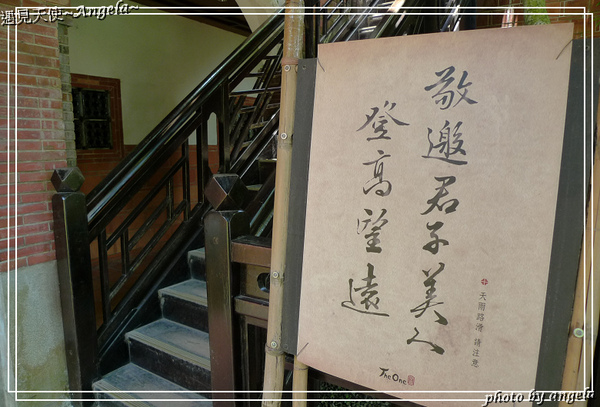 遇見天使~Angela~
敬邀君子美人
登高望遠
天雨路滑 請注意
The One
photo by angela